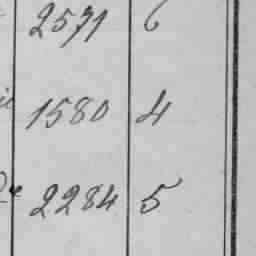 2571 6
1580 4
2284 5